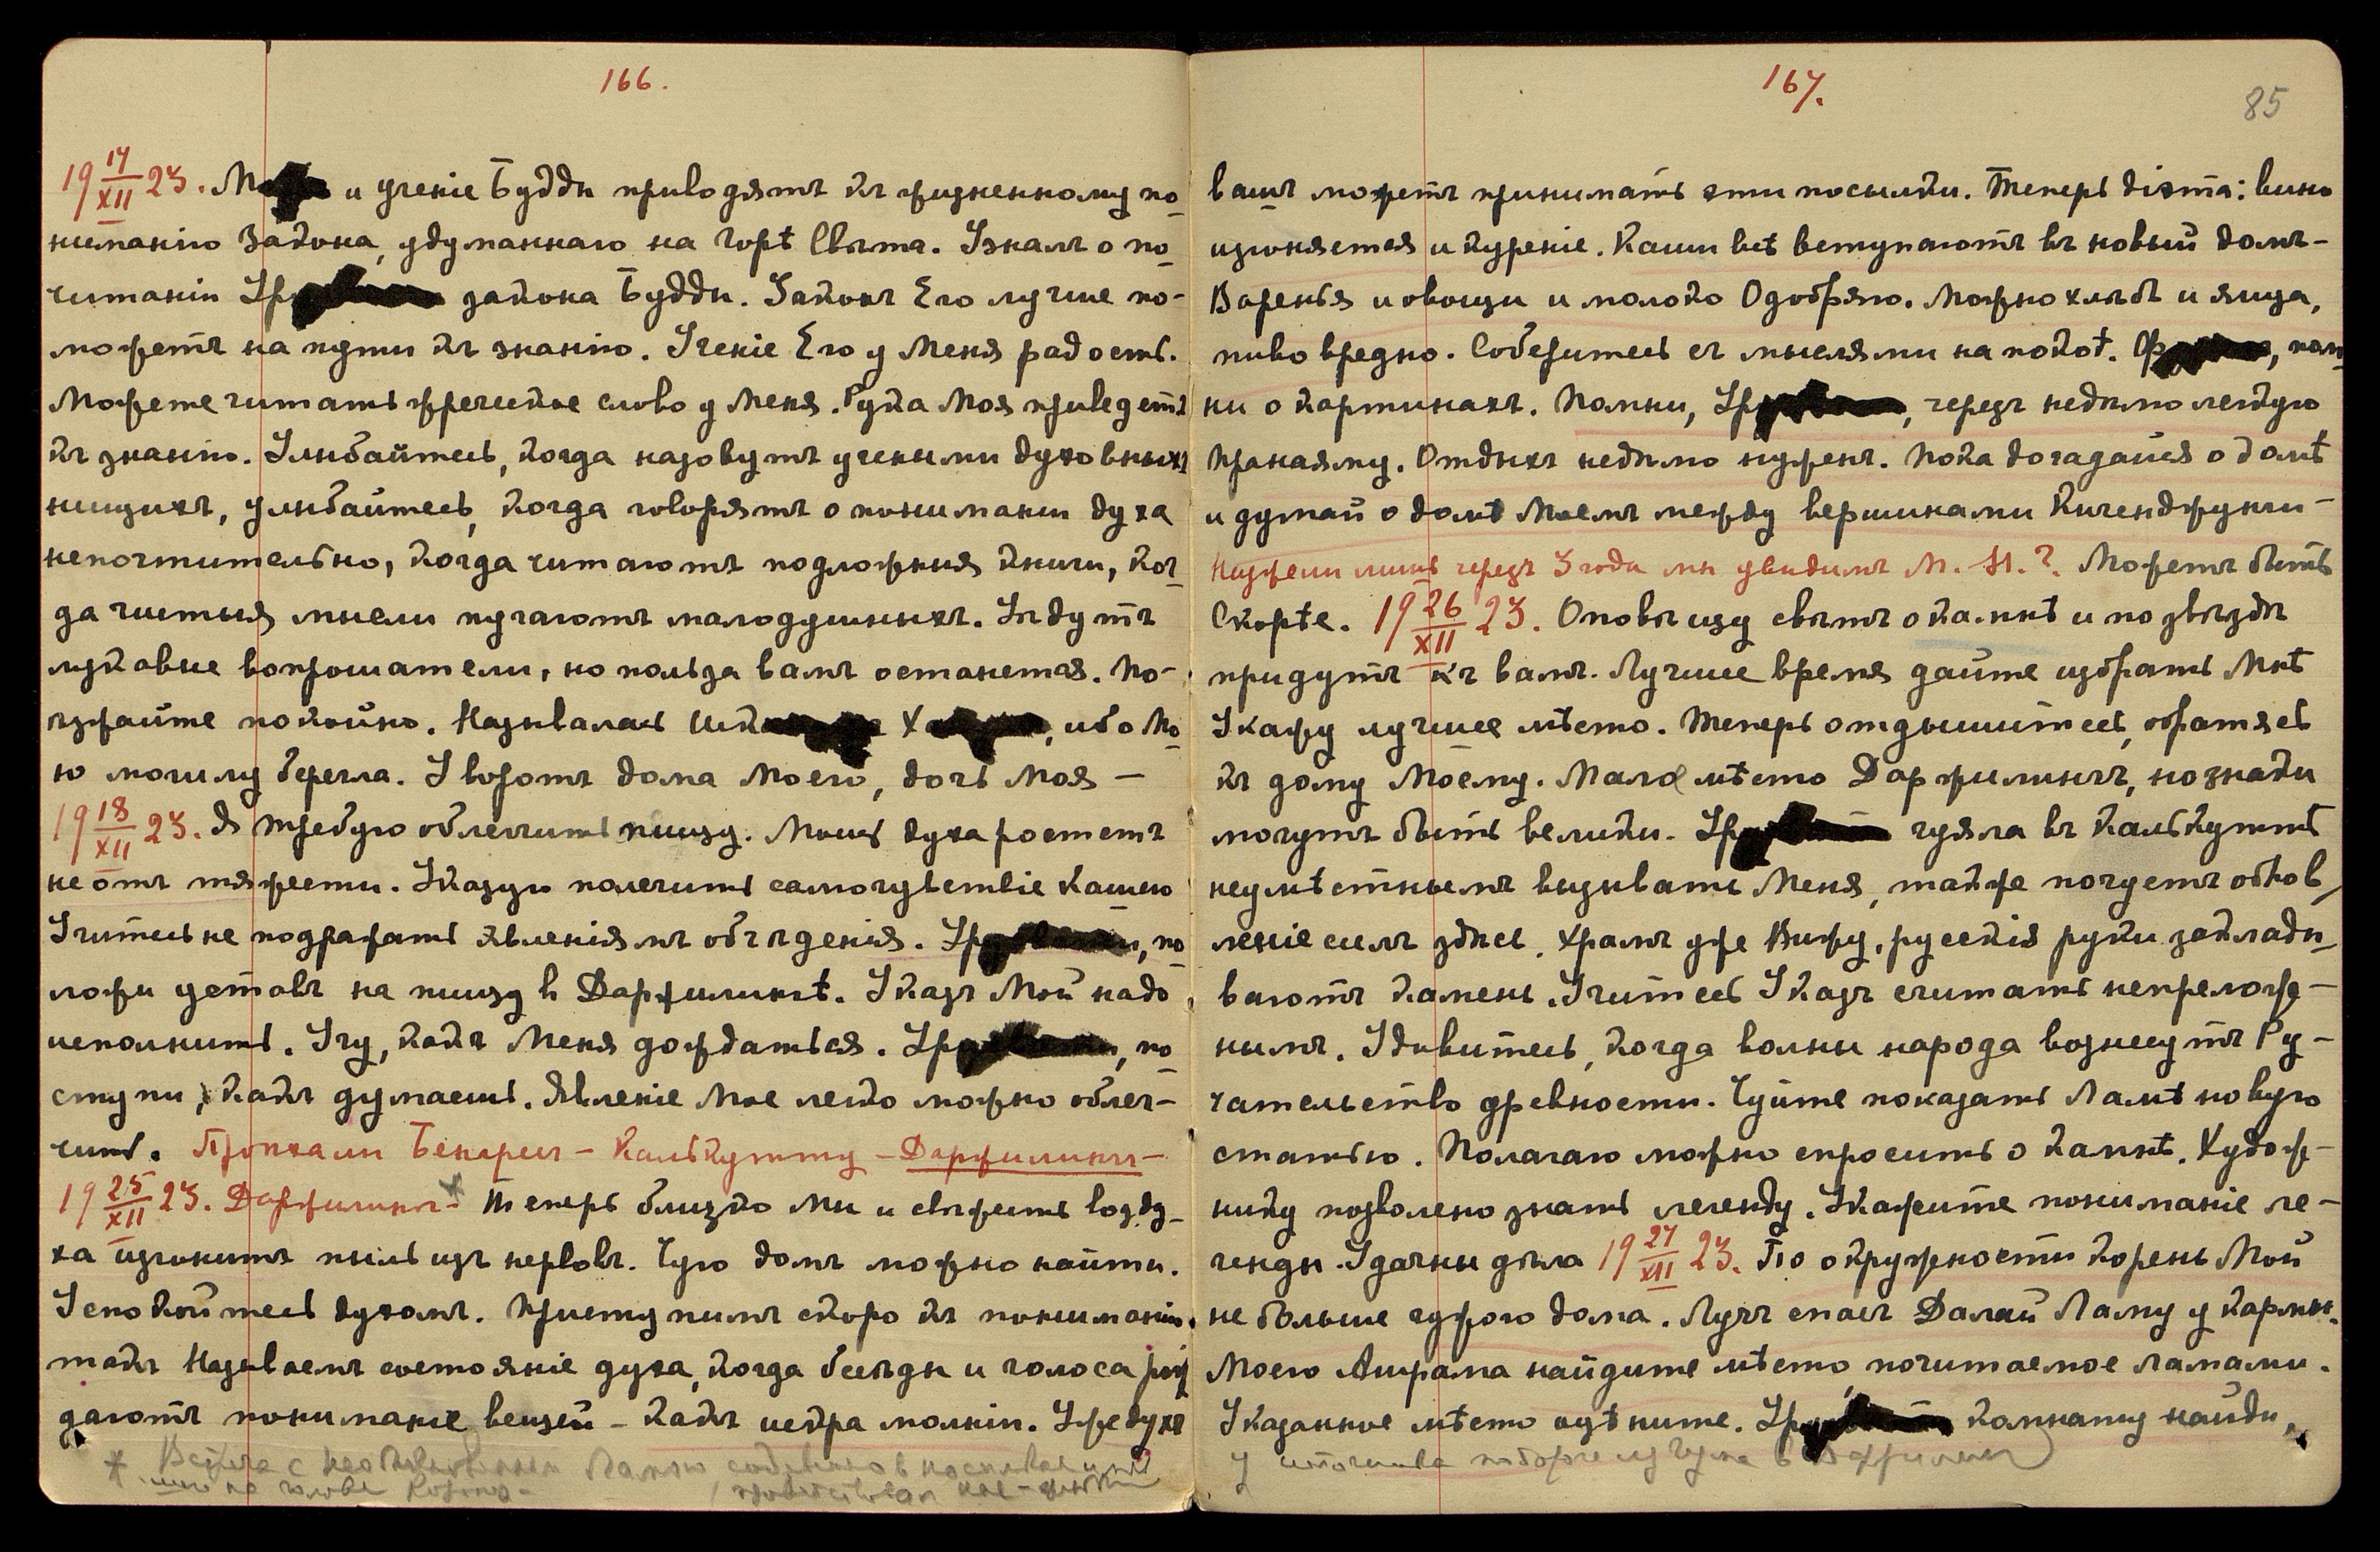 166.
19 17/XII 23. М и ученіе Будды приводятъ къ жизненному по-
ниманію Закона, удуманнаго на горѣ Свѣта. Узналъ о по-
читаніи Ур закона Будды. Законъ Его лучше по-
можетъ на пути къ знанію. Ученіе Его у Меня радость.
Можете читать жреческое слово у Меня. Рука Моя приведетъ
къ знанію. Улыбайтесь, когда назовутъ учеными духовныхъ
нищихъ, улыбайтесь, когда говорятъ о понимании духа
непочтительно, когда читаютъ подложныя книги, ког-
да чистыя мысли пугаютъ малодушныхъ. Ѣдутъ
лукавые вопрошатели, но польза вамъ останется. По-
ѣзжайте покойно. Называлась Х , ибо Мо-
ю могилу берегла. У воротъ дома Моего, дочь Моя —
19 18/XII 23. Я требую облегчить пищу. Мощь духа ростетъ
не отъ тяжести. Указую полегчить самочувствіе Каши
Учитесь не подражать явленіямъ объѣденія. Ур , по-
ложи уставъ на пищу в Даржилингѣ. Указъ Мой надо
исполнить. Учу, какъ Меня дождаться. Ур , по-
ступи, какъ думаешь. Явленіе Мое легко можно облег-
чить. Проѣхали Бенаресъ — Калькутту — Даржилингъ —
19 25/XII 23. Даржилингъ * Теперь близко Мы и свѣжесть возду-
ха изгонитъ пыль изъ нервовъ. Чую домъ можно найти.
Успокойтесь духомъ. Приступимъ скоро къ пониманію.
такъ Называемъ состояніе духа, когда бесѣды и голоса рож
даютъ пониманіе вещей — какъ искра молніи. Уже духъ
* с Ламою
на голове
167.
85
вашъ можетъ принимать эти посылки. Теперь діэта: вино
изгоняется и куреніе. Каши всѣ вступаютъ въ новый домъ —
Варенья и овощи и молоко Одобряю. Можно хлѣбъ и яйца,
пиво вредно. Соберитесь съ мыслями на покоѣ. Ф , пом-
ни о картинахъ. Помни, Ур , черезъ недѣлю легкую
Пранаяму. Отдыхъ недѣлю нуженъ. Пока догадайся о домѣ
и думай о домѣ Моемъ между вершинами Кинченджунги —
Неужели лишь черезъ 3 года мы увидимъ М. М.? Можетъ быть
Скорѣе. 19 26/XII 23. Оповѣщу свѣтъ о камнѣ и по звѣздѣ
придутъ къ вамъ. Лучшее время дайте избрать Мнѣ
Укажу лучшее мѣсто. Теперь отдышитесь, обратясь
къ дому Моему. Мало мѣсто Даржилингъ, но знаки
могутъ быть велики. Ур чуяла въ Калькуттѣ
неумѣстнымъ вызывать Меня, также почуетъ обнов-
леніе силъ здѣсь. Храмъ уже Вижу, русскія руки заклады-
ваютъ камень. Учитесь Указъ считать непрелож-
нымъ. Удивитесь, когда волны народа вознесутъ Ру-
чательство древности. Чуйте показать Ламѣ новую
статью. Полагаю можно спросить о камнѣ. Худож-
нику позволено знать легенду. Укажите пониманіе ле-
генды. Удачны дѣла 19 27/XII 23. По окружности корень Мой
не больше чужого дома. Лучъ спасъ Далай Ламу у кармы.
Моего Ашрама найдите мѣсто, почитаемое ламами.
Указанное мѣсто оцѣните. Ур комнату найди,
у источника